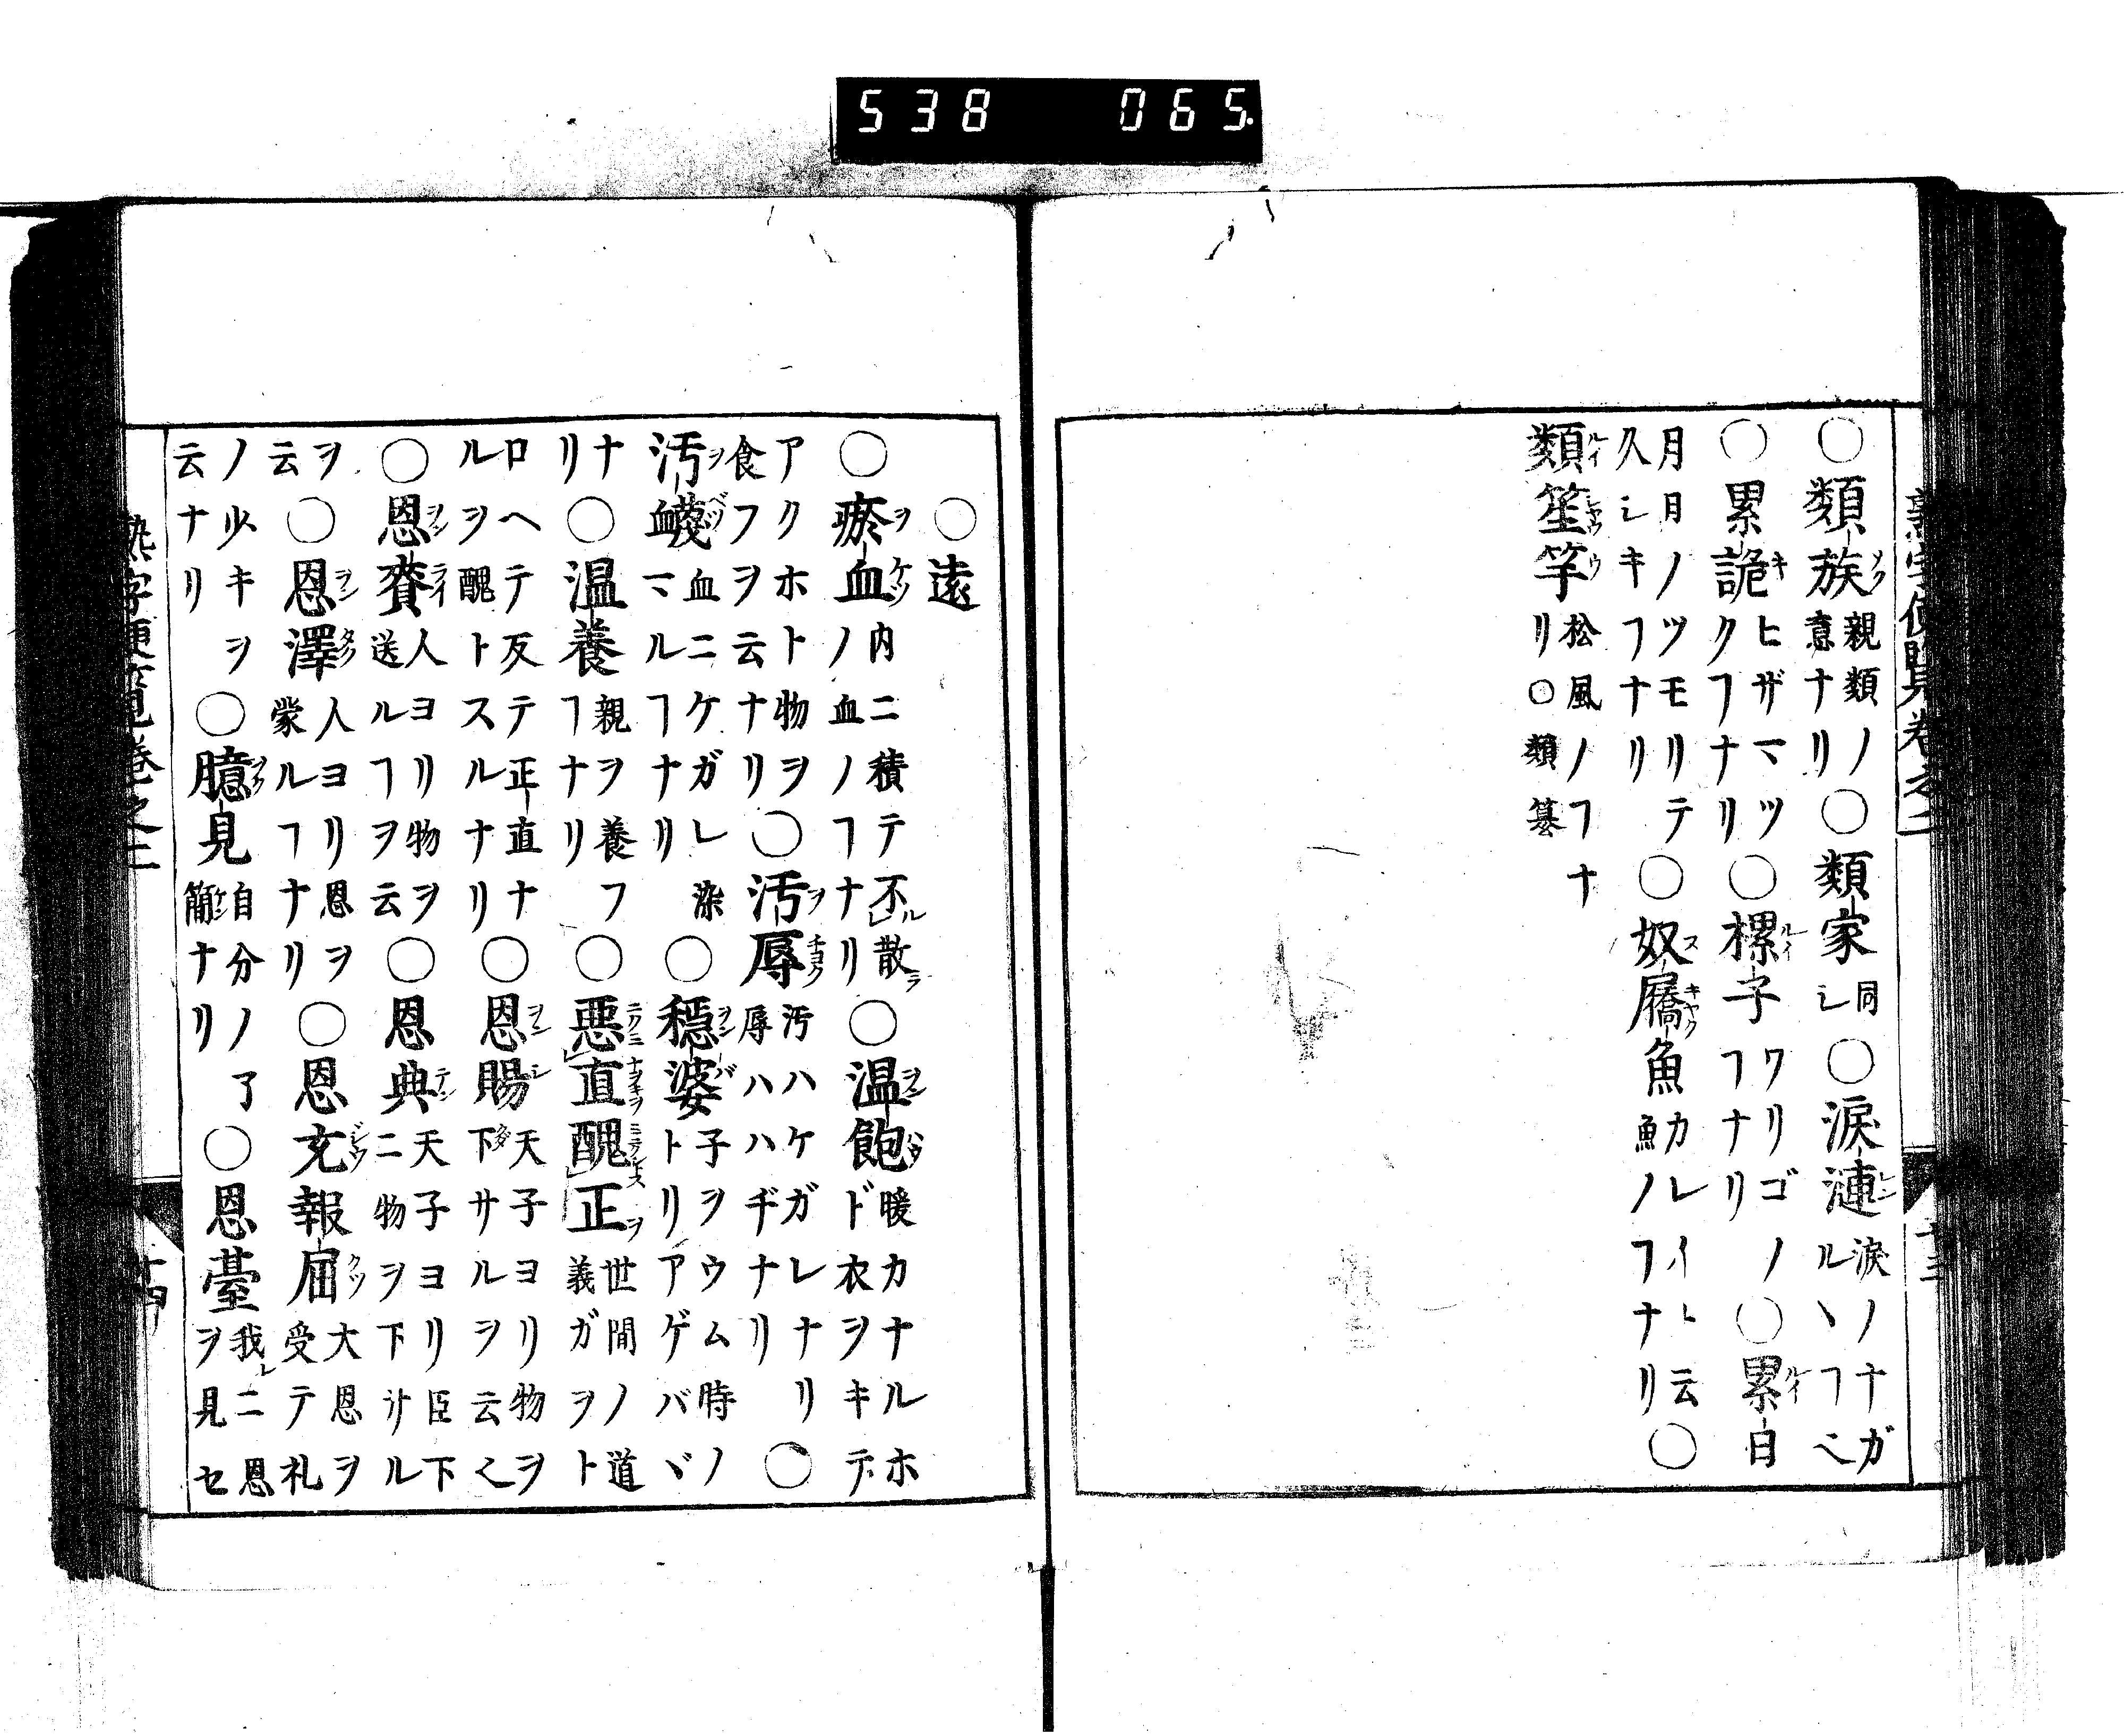 538 065.
○類族親類ノ意ナリ○類家同シ○涙漣涙ノナガルヽヿヘ
○累詭ヒザマツクヿナリ○樏子ワリゴノヿナリ○累日
月日ノツモリテ久シキヿナリ○奴屩魚カレイト云魚ノヿナリ○
類笙竽松風ノヿナリ○類纂
○遠
○瘀血内ニ積テ不散ノ血ノヿナリ○温飽暖カナルホド衣ヲキテ
アクホト物ヲ食フヲ云ナリ○汚辱汚ハケガレナリ辱ハハヂナリ○
汚衊血ニケガレ染マルヿナリ○穏婆子ヲウム時ノトリアゲバヾ
ナリ○温養親ヲ養フヿナリ○悪直醜正世間ノ道義ガヲト
ロヘテ反テ正直ナルヲ醜トスルナリ○恩賜天子ヨリ物ヲ下サルヲ云
○恩賚人ヨリ物ヲ送ルヿヲ云○恩典天子ヨリ臣下ニ物ヲ下サル
ヲ云○恩澤人ヨリ恩ヲ蒙ルヿナリ○恩充報届大恩ヲ受テ礼
ノ少キヲ云ナリ○臆見自分ノ了簡ナリ○恩臺我ニ恩ヲ見セ